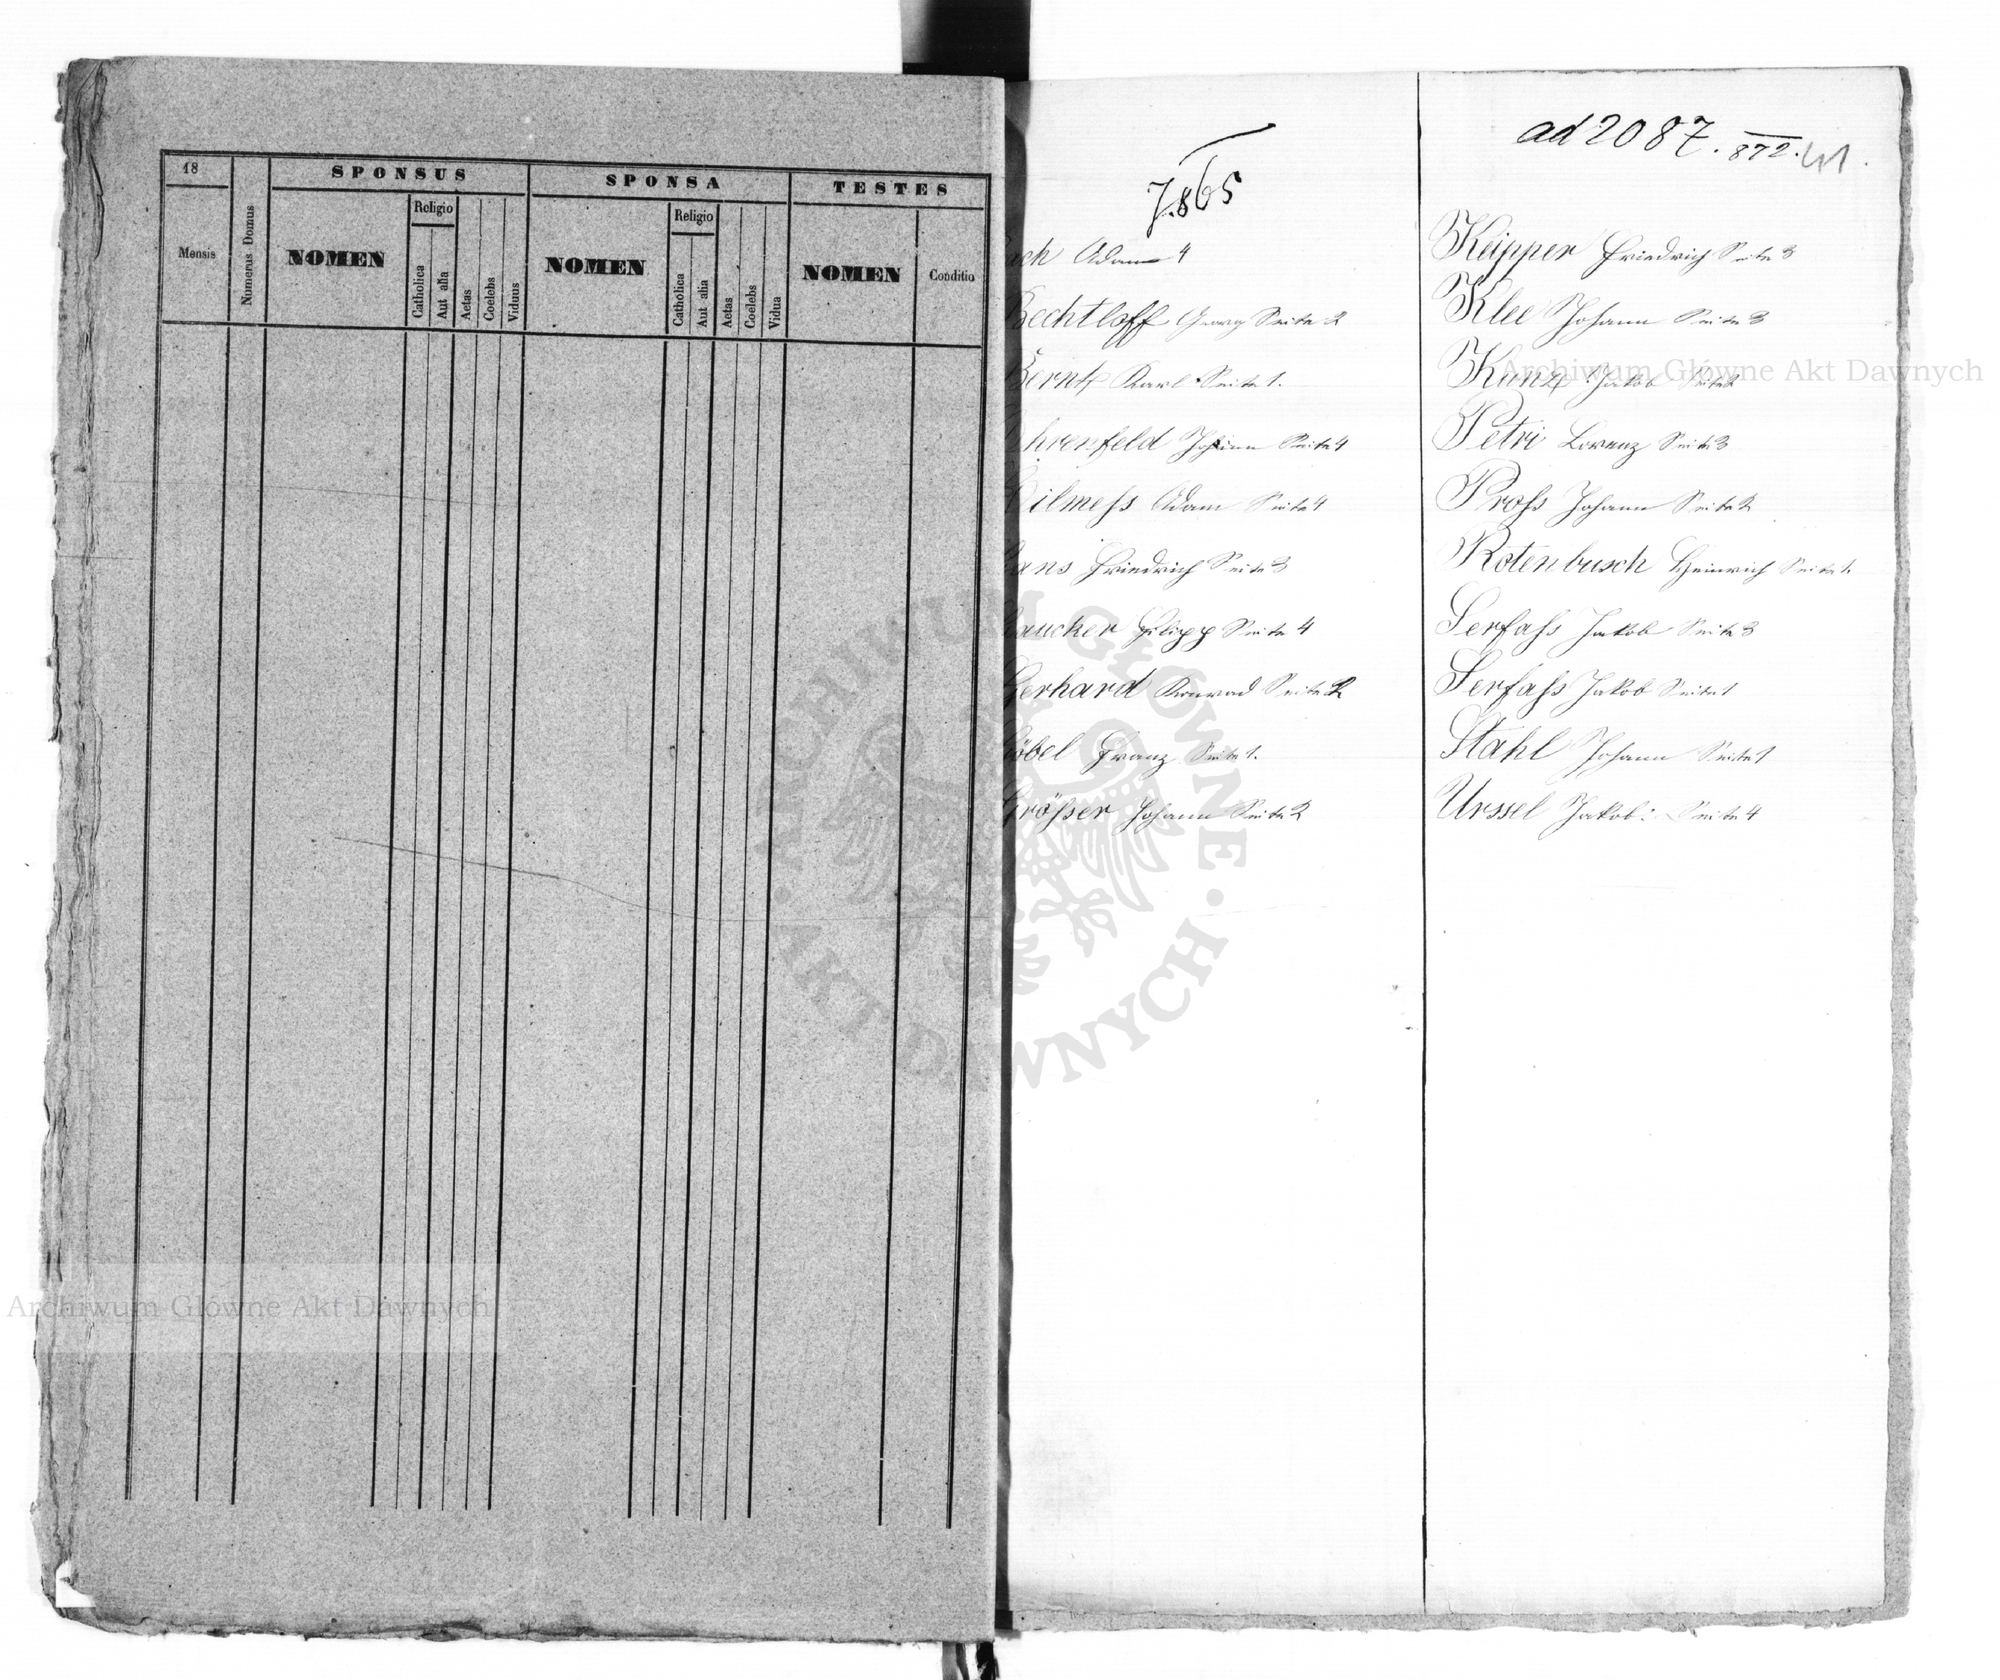 18
Mensis
Numerus Domus
SPONSUS
NOMEN
Religio
Catholica
Aut alia
Aetas
Coelebs
Viduus
SPONSA
NOMEN
Religio
Catholica
Aut alia
Aetas
Coelebs
Vidua
TESTES
NOMEN
Conditio
865
ach Adam 4
Bechtloff Georg Seite 2
Bernk Karl Seite 1.
hrenfeld Johann Seite 4
ilmeſs Adam Seite 4
ans Friedrich Seite 3
aucker Filipp Seite 4
Gerhard Konrad Seite 2
öbel Franz Seite 1.
Größer Johann Seite 2
ad 2087. 872. 41.
Keipper Friedrich Seite 3
Klee Johann Seite 3
Kunz Jakob Seite
Petri Lorenz Seite 3
Proſs Johann Seite 2
Rotenbusch Heinrich Seite 1.
Serfaſs Jakob Seite 3
Serfaſs Jakob Seite 1
Stahl Johann Seite 1
Urssel Jakob: Seite 4
Archiwum Główne Akt Dawnych
ARCHIWUM GŁÓWNE · AKT DAWNYCH ·
Archiwum Główne Akt Dawnych